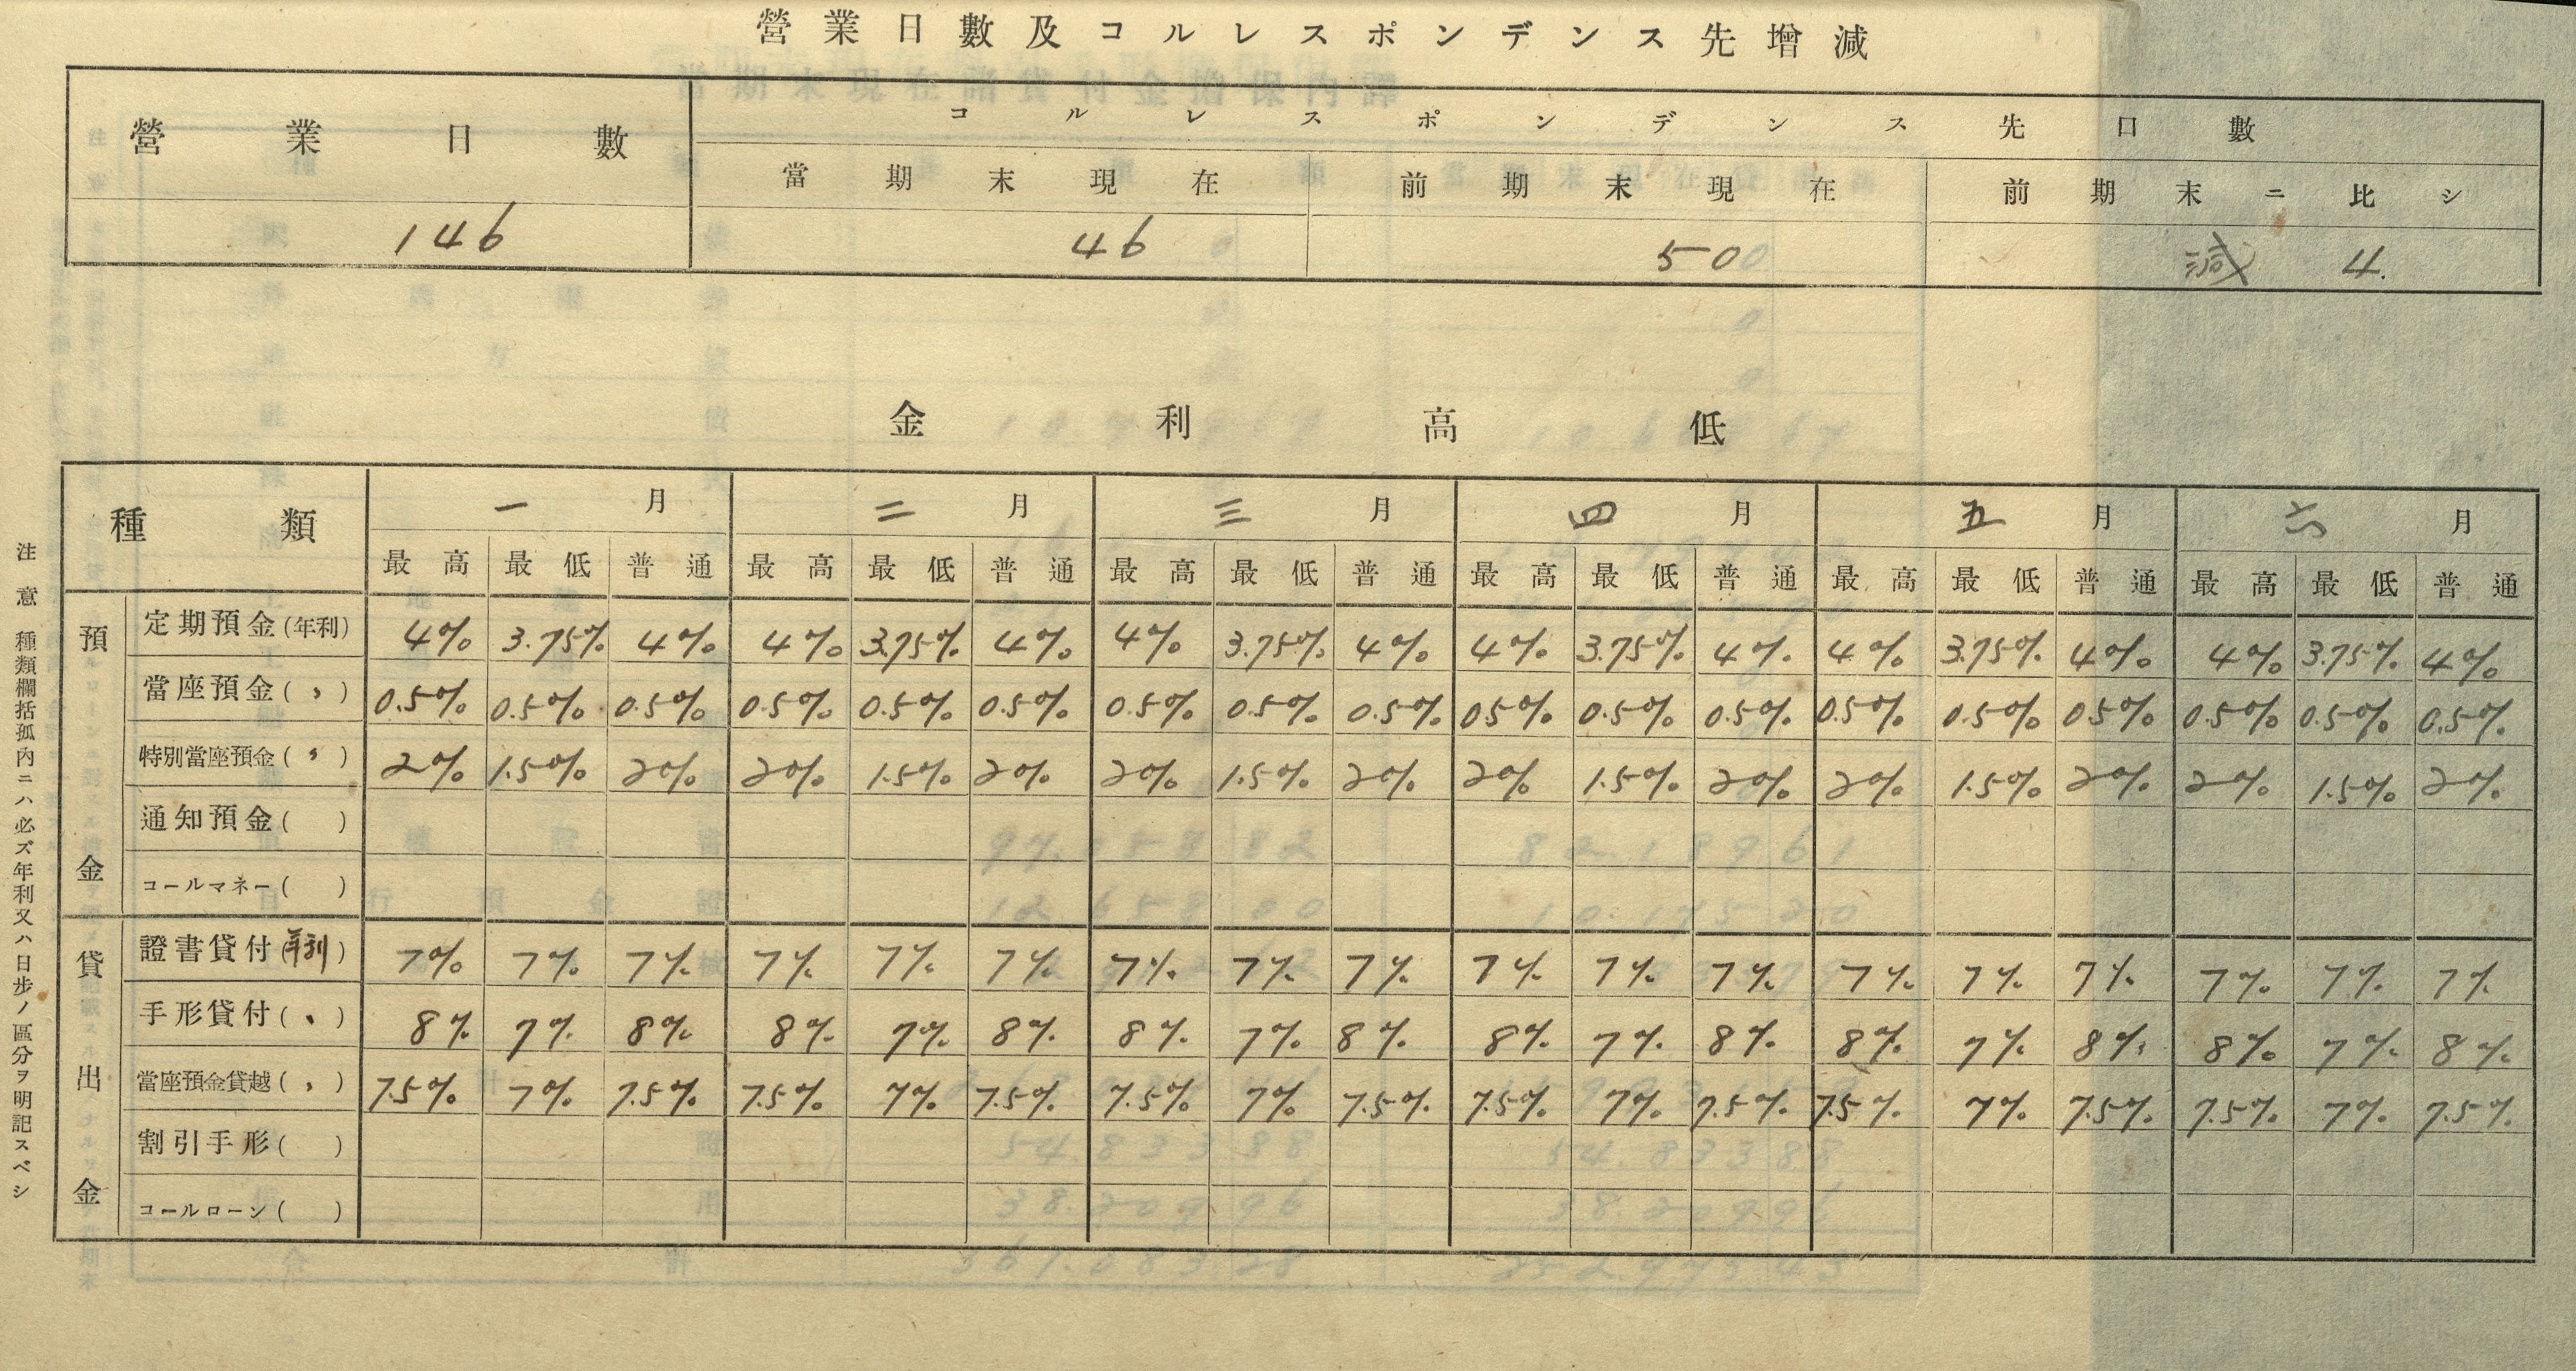 營業日數及コルレスポンデンス先增減
營業日數 コルレスポンデンス先口數
當期末現在 前期末現在 前期末ニ比シ
146 46 50 減 4.
金利高低
種類 一月 二月 三月 四月 五月 六月
最高 最低 普通 最高 最低 普通 最高 最低 普通 最高 最低 普通 最高 最低 普通 最高 最低 普通
預金
定期預金(年利) 4% 3.75% 4% 4% 3.75% 4% 4% 3.75% 4% 4% 3.75% 4% 4% 3.75% 4% 4% 3.75% 4%
當座預金(〃) 0.5% 0.5% 0.5% 0.5% 0.5% 0.5% 0.5% 0.5% 0.5% 0.5% 0.5% 0.5% 0.5% 0.5% 0.5% 0.5% 0.5% 0.5%
特別當座預金(〃) 2% 1.5% 2% 2% 1.5% 2% 2% 1.5% 2% 2% 1.5% 2% 2% 1.5% 2% 2% 1.5% 2%
通知預金( )
コールマネー( )
貸出金
證書貸付(年利) 7% 7% 7% 7% 7% 7% 7% 7% 7% 7% 7% 7% 7% 7% 7% 7% 7% 7%
手形貸付(〃) 8% 7% 8% 8% 7% 8% 8% 7% 8% 8% 7% 8% 8% 7% 8% 8% 7% 8%
當座預金貸越(〃) 7.5% 7% 7.5% 7.5% 7% 7.5% 7.5% 7% 7.5% 7.5% 7% 7.5% 7.5% 7% 7.5% 7.5% 7% 7.5%
割引手形( )
コールローン( )
注意 種類欄括孤內ニハ必ズ年利又ハ日步ノ區分ヲ明記スベシ